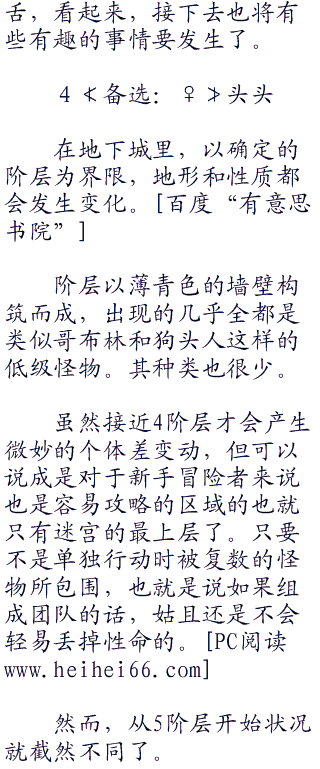 舌，看起来，接下去也将有
些有趣的事情要发生了。
4≮备选：♀≯头头
在地下城里，以确定的
阶层为界限，地形和性质都
会发生变化。[百度“有意思
书院”]
阶层以薄青色的墙壁构
筑而成，出现的几乎全都是
类似哥布林和狗头人这样的
低级怪物。其种类也很少。
虽然接近4阶层才会产生
微妙的个体差变动，但可以
说成是对于新手冒险者来说
也是容易攻略的区域的也就
只有迷宫的最上层了。只要
不是单独行动时被复数的怪
物所包围，也就是说如果组
成团队的话，姑且还是不会
轻易丢掉性命的。[PC阅读
www.heihei66.com]
然而，从5阶层开始状况
就截然不同了。